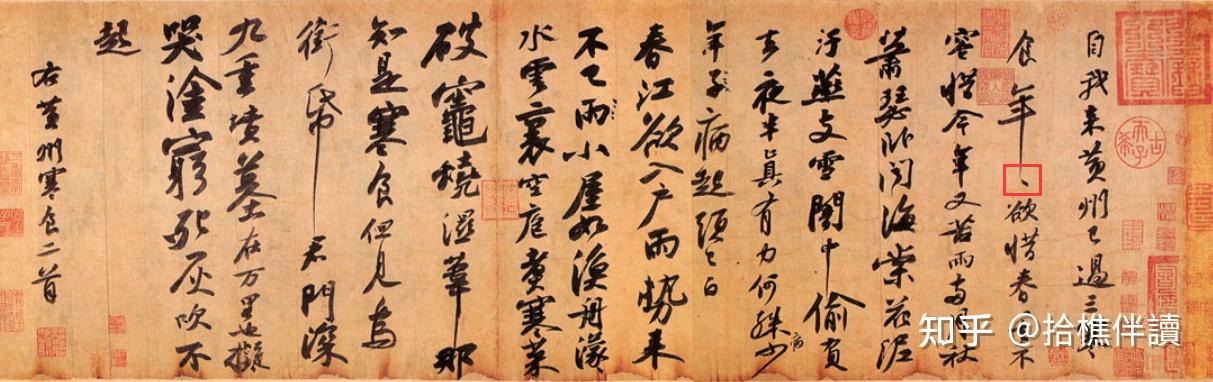 自我来黄州已過三寒
食年、欲惜春、去不
容惜今年又苦雨兩月秋
蕭瑟卧聞海棠花泥
汙燕支雪闇中偷負
去夜半真有力何殊少
病
年子病起頭已白
春江欲入户雨勢来
不已雨小屋如漁舟濛
水雲裏空庖煮寒菜
破竈燒濕葦那
知是寒食但見烏
銜帋君門深
九重墳墓在万里也擬
哭塗窮死灰吹不
起
右黄州寒食二首
知乎 @拾樵伴讀